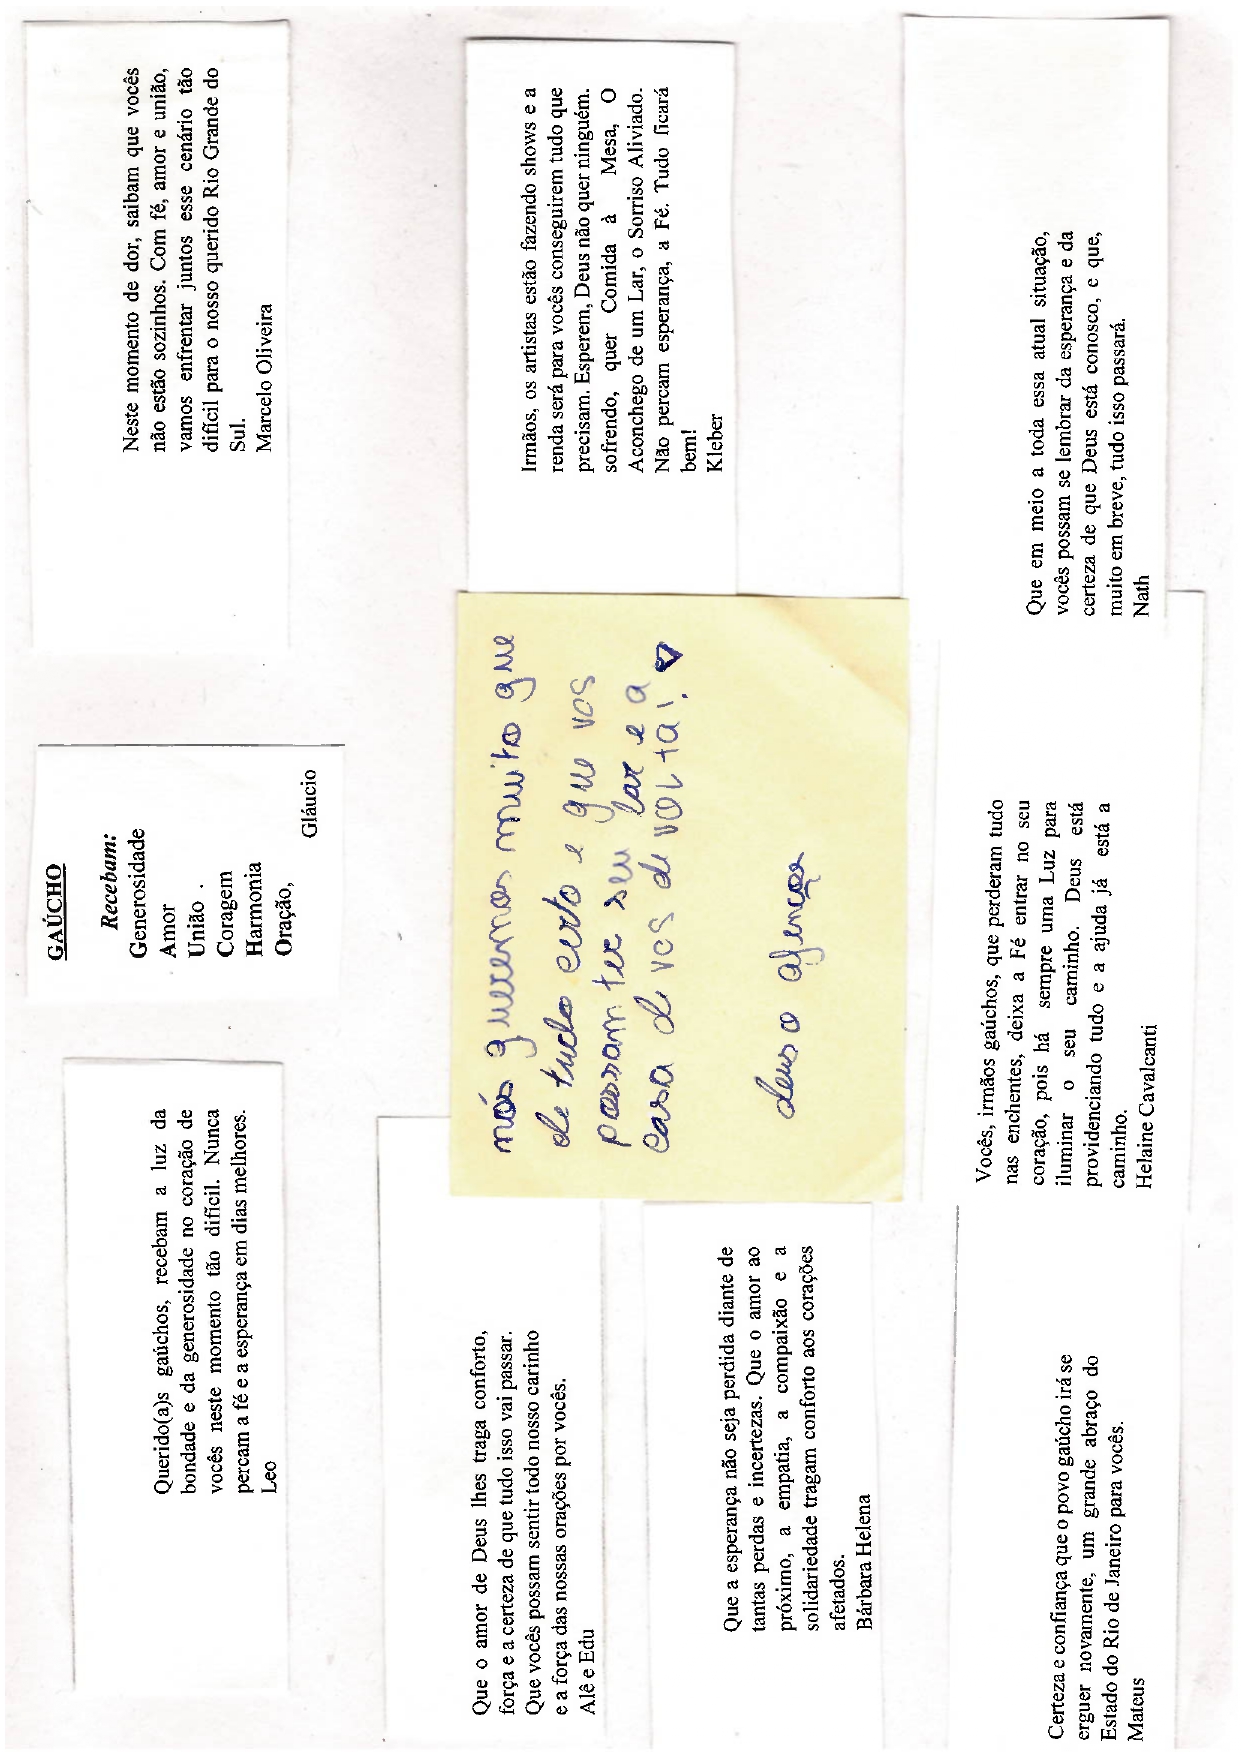 Querido(a)s gaúchos, recebam a luz da
bondade e da generosidade no coração de
vocês neste momento tão difícil. Nunca
percam a fé e a esperança em dias melhores.
Leo
GAÚCHO
Recebam:
Generosidade
Amor
União .
Coragem
Harmonia
Oração,
Gláucio
Neste momento de dor, saibam que vocês
não estão sozinhos. Com fé, amor e união,
vamos enfrentar juntos esse cenário tão
difícil para o nosso querido Rio Grande do
Sul.
Marcelo Oliveira
Que o amor de Deus lhes traga conforto,
força e a certeza de que tudo isso vai passar.
Que vocês possam sentir todo nosso carinho
e a força das nossas orações por vocês.
Alê e Edu
nós queremos muito que
de tudo certo e que vos
possam ter seu lar e a
casa de vos de volta!
deus o
Irmãos, os artistas estão fazendo shows e a
renda será para vocês conseguirem tudo que
precisam. Esperem, Deus não quer ninguém.
sofrendo, quer Comida à Mesa, O
Aconchego de um Lar, o Sorriso Aliviado.
Não percam esperança, a Fé. Tudo ficará
bem!
Kleber
Que a esperança não seja perdida diante de
tantas perdas e incertezas. Que o amor ao
próximo, a empatia, a compaixão e a
solidariedade tragam conforto aos corações
afetados.
Bárbara Helena
Certeza e confiança que o povo gaúcho irá se
erguer novamente, um grande abraço do
Estado do Rio de Janeiro para vocês.
Mateus
Vocês, irmãos gaúchos, que perderam tudo
nas enchentes, deixa a Fé entrar no seu
coração, pois há sempre uma Luz para
iluminar o seu caminho. Deus está
providenciando tudo e a ajuda já está a
caminho.
Helaine Cavalcanti
Que em meio a toda essa atual situação,
vocês possam se lembrar da esperança e da
certeza de que Deus está conosco, e que,
muito em breve, tudo isso passará.
Nath